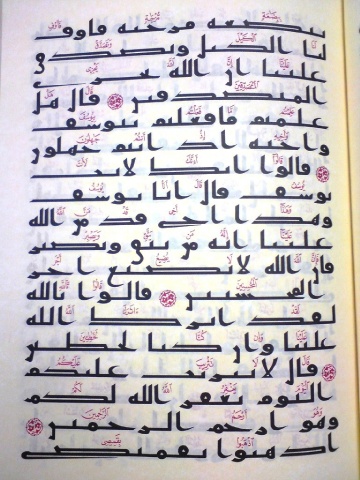 ببضعة مزجية فاوف
لنا الكيل وتصدق
علينا ان الله يجزي
المتصدقين ۝ قال هل
علمتم ما فعلتم بيوسف
واخيه اذ انتم جهلون
۝ قالوا انك لانت
يوسف قال انا يوسف
وهذا اخي قد من الله
علينا انه من يتق ويصبر
فان الله لا يضيع اجر
المحسنين ۝ قالوا تالله
لقد اثرك الله
علينا وان كنا لخطين
۝ قال لا تثريب عليكم
اليوم يغفر الله لكم
وهو ارحم الرحمين ۝
اذهبوا بقميصي